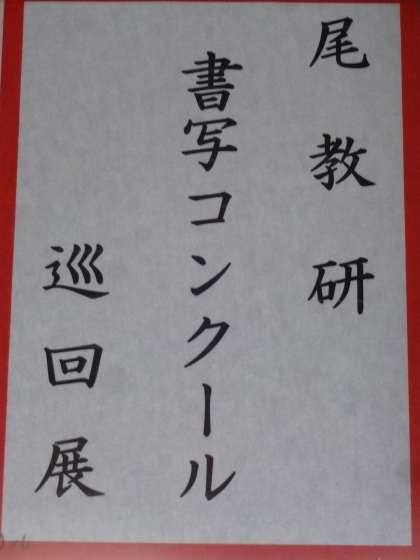 尾教研
書写コンクール
巡回展